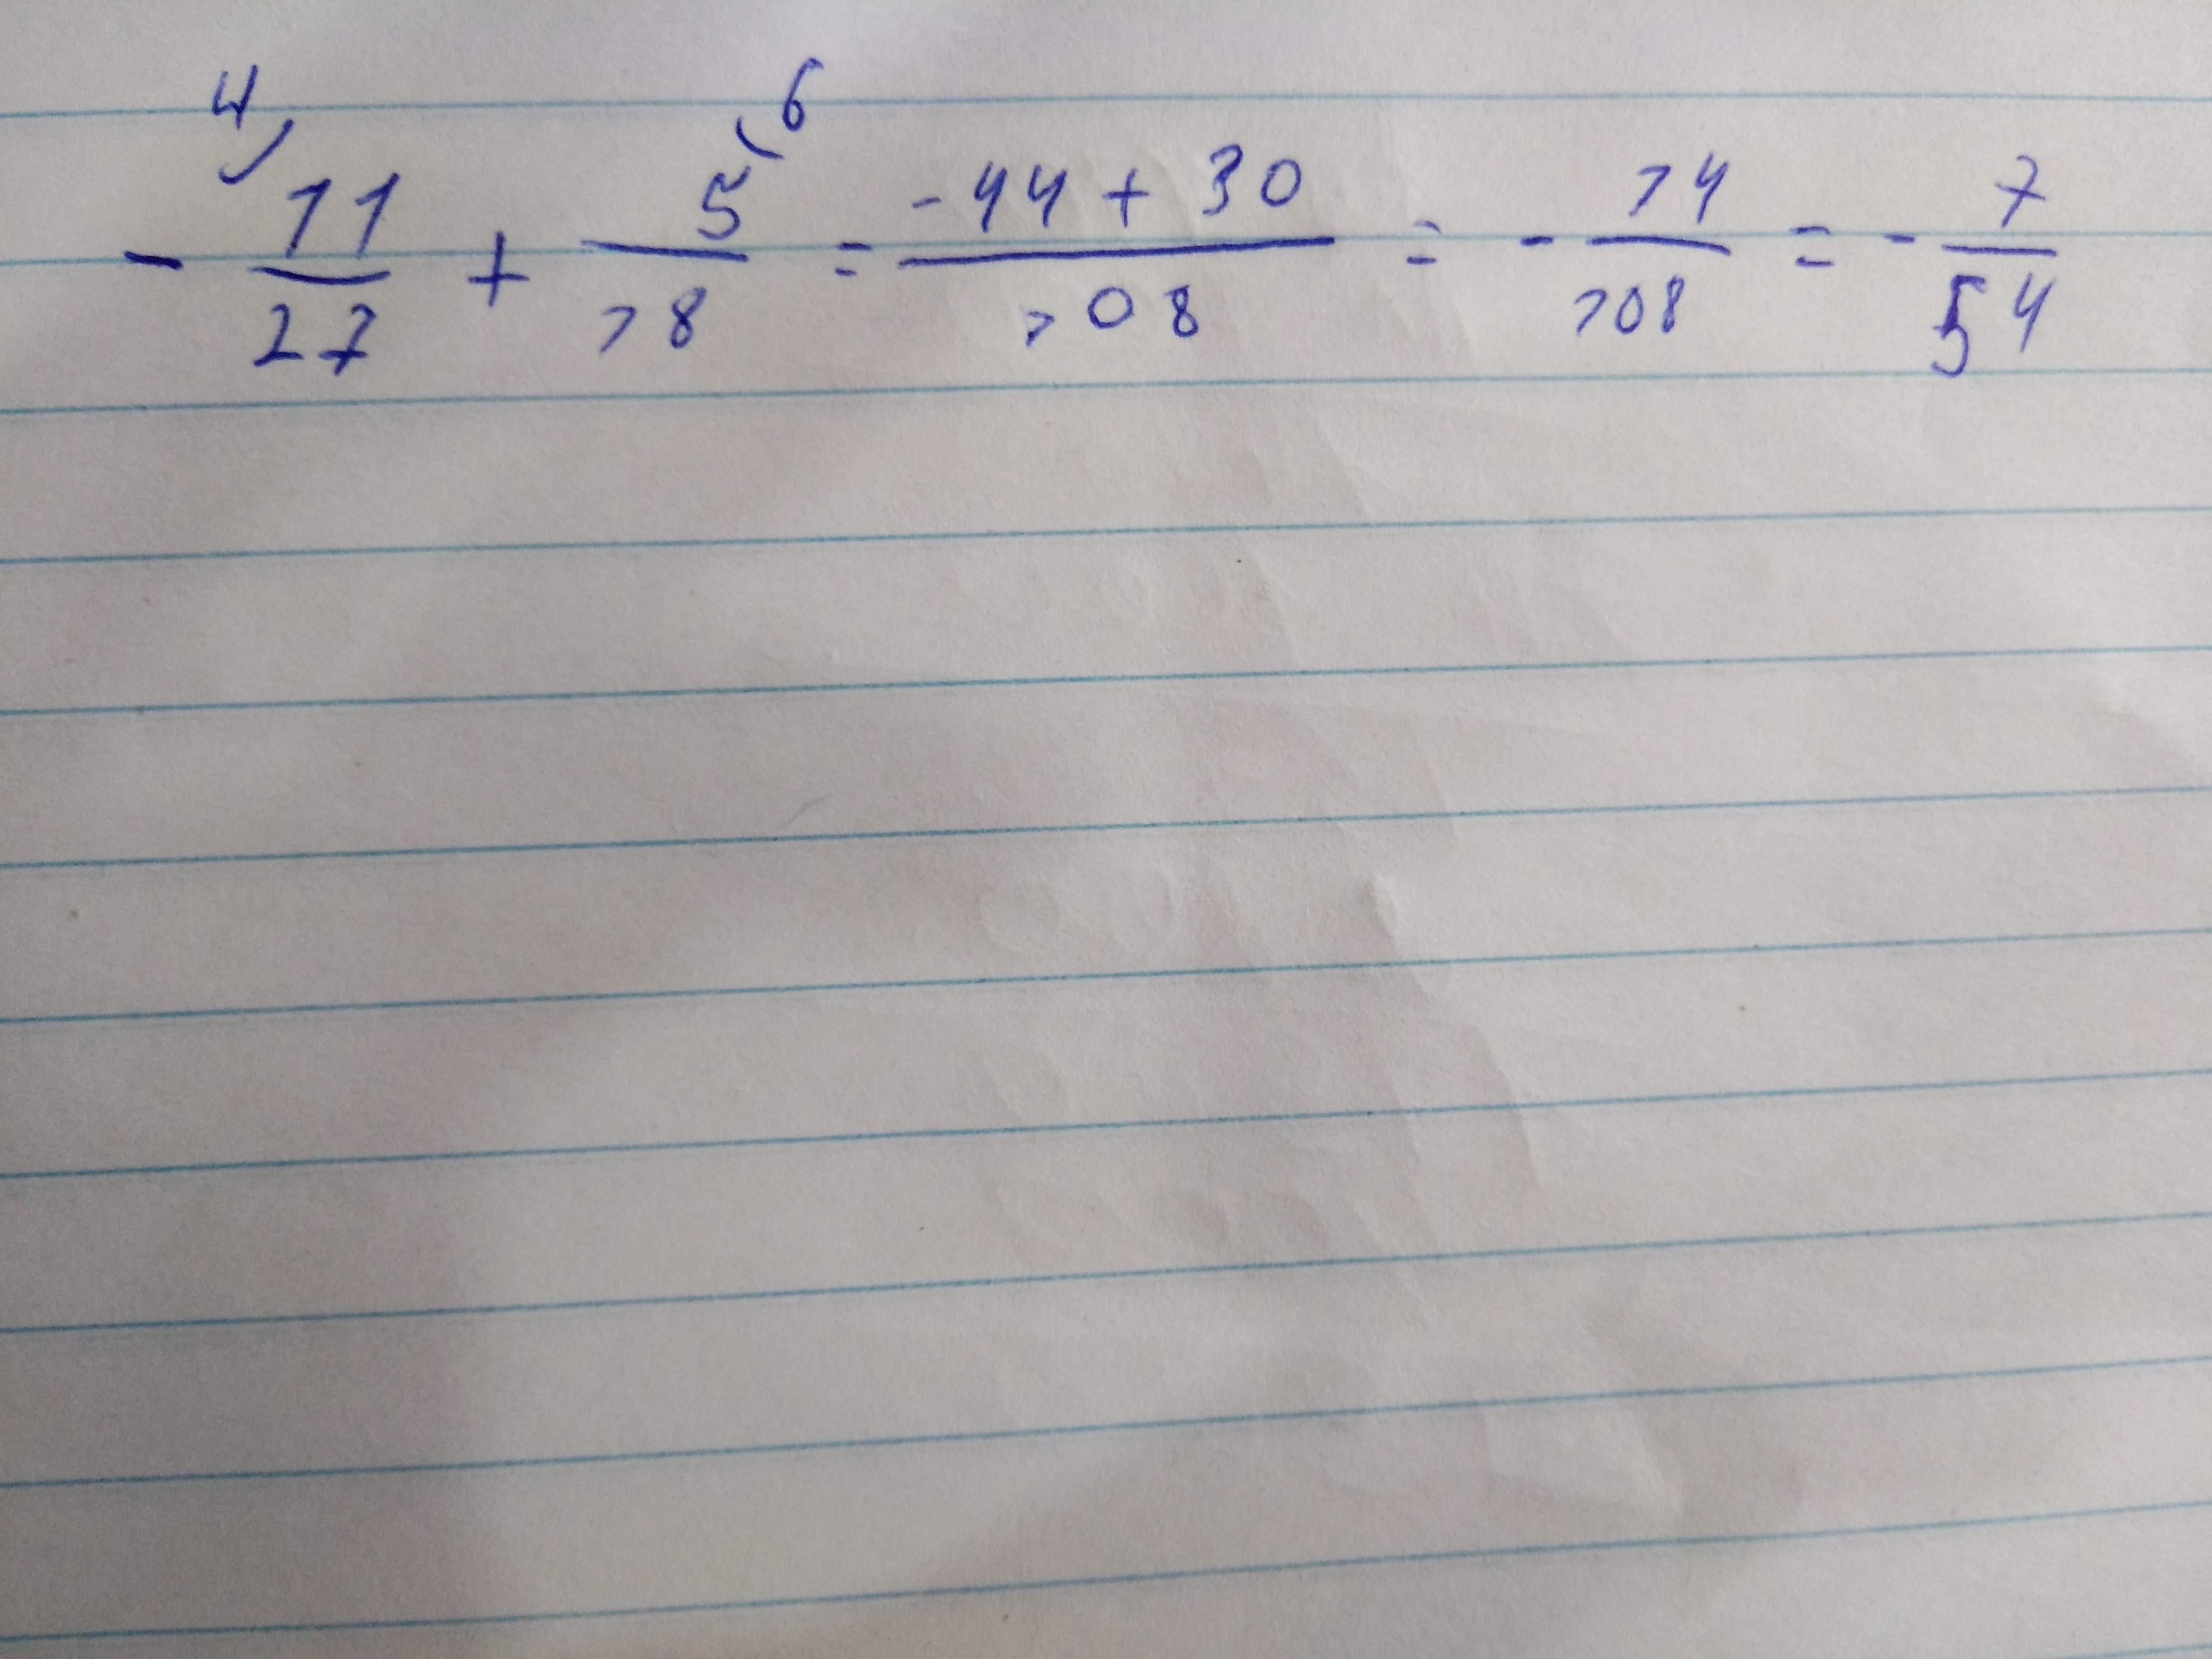 4 6
- 11/27 + 5/18 = -44 + 30/108 = - 14/108 = - 7/54